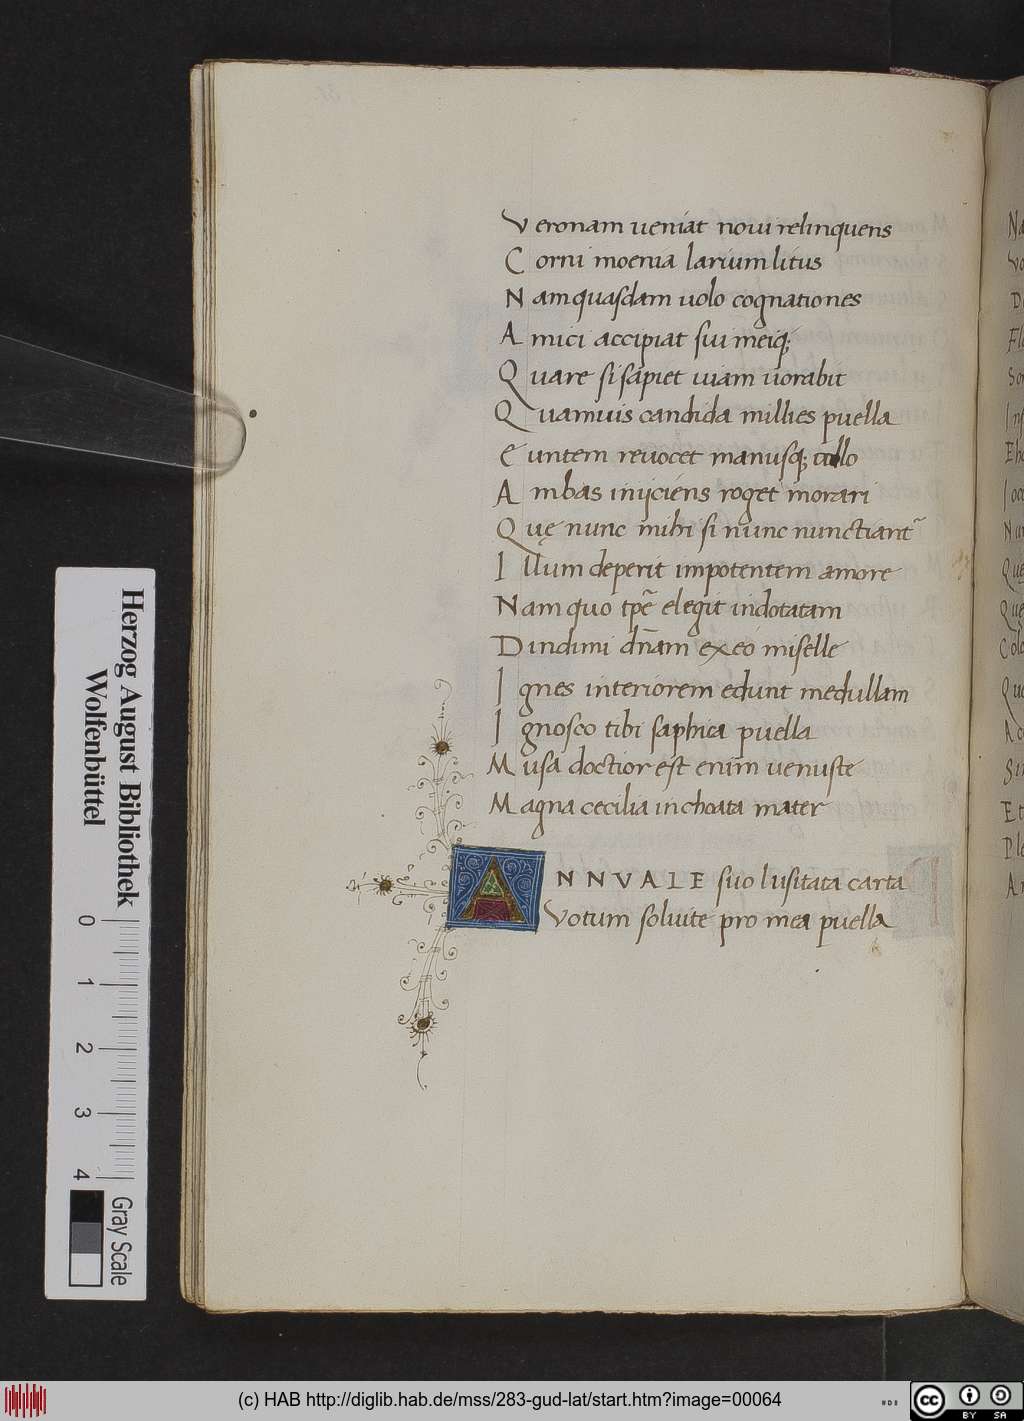 Veronam veniat novi relinquens
Corni moenia larium litus
Nam quasdam uolo cognationes
Amici accipiat sui meiq;
Quare si sapiet uiam uorabit
Quamuis candida millies puella
Euntem reuocet manusq; collo
Ambas inijciens roget morari
Quę nunc mihi si nunc nunctiant᷑
Illum deperit impotentem amore
Nam quo tp̄e elegit indotatam
Dindimi dn̄am ex eo miselle
Ignes interiorem edunt medullam
Ignosco tibi saphica puella
Musa doctior est enim uenuste
Magna cecilia inchoata mater
ANNVALE suo lusitata carta
Votum soluite pro mea puella
Herzog August Bibliothek
Wolfenbüttel
0 1 2 3 4
Gray Scale
(c) HAB http://diglib.hab.de/mss/283-gud-lat/start.htm?image=00064
cc BY SA